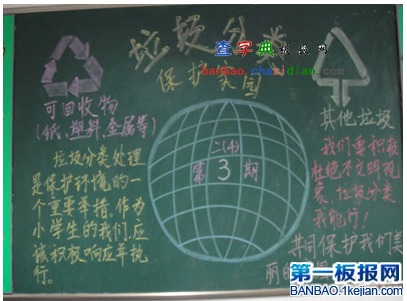 垃圾分类
查字典 板报网
banbao.chazidian.com
保护家园
可回收物
(纸、塑料、金属等)
垃圾分类处理
是保护环境的一
个重要举措,作为
小学生的我们应
该积极响应并执
行。
二(4)
第3期
其他垃圾
我们要积极
杜绝不文明现
象,垃圾分类
我能行!
共同保护我们美
丽的
第一板报网
BANBAO.1kejian.com